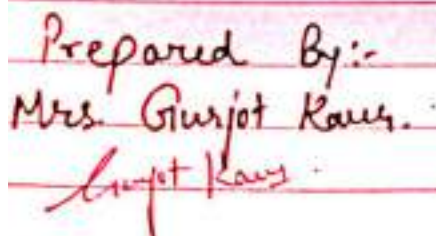 Prepared By:-
Mrs. Gurjot Kaur.
Gurjot Kaur.